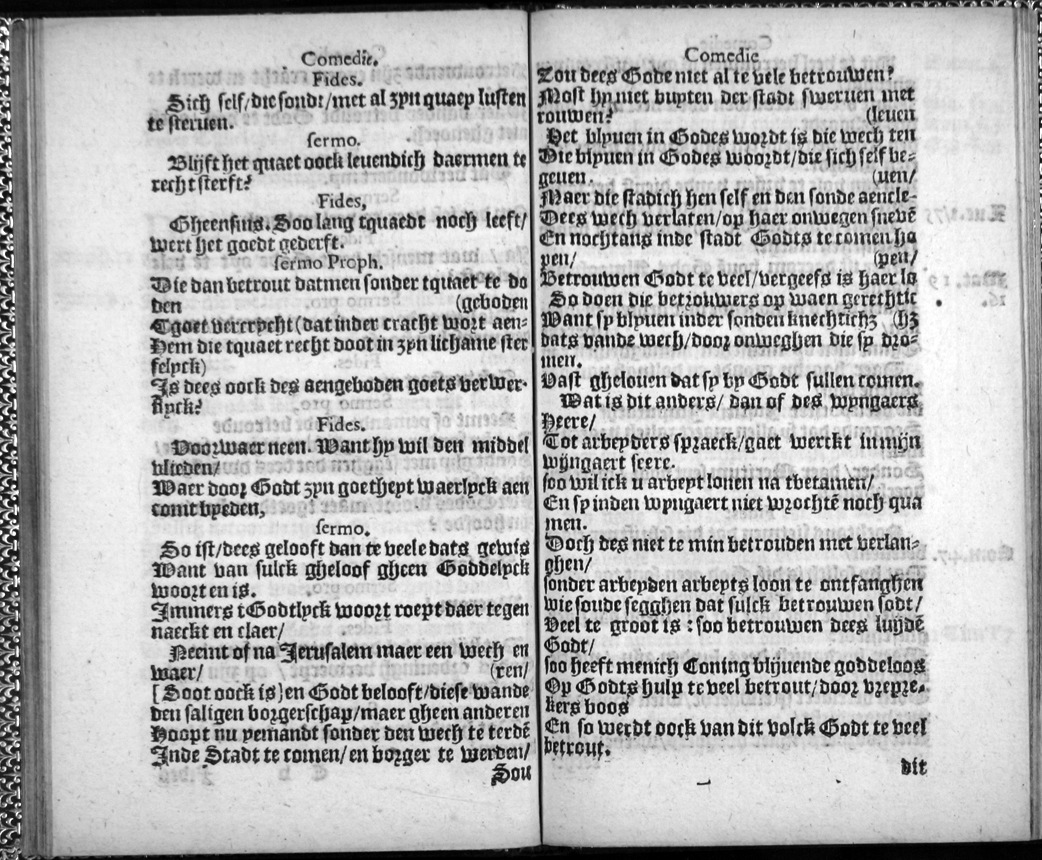 Comedie.
Fides.
Sich self/die sonde/met al zyn quaep lusten
te steruen.
sermo.
Blijft het quaet oock leuendich daermen te
recht sterft?
Fides,
Gheensins. Soo lang tquaedt noch leeft/
wert het goedt gederft.
sermo Proph.
Die dan betrout datmen sonder tquaer te do
den (geboden
Tgoet vercrycht (dat inder cracht wort aen-
Hem die tquaet recht doot in zyn lichame ster
felyck)
Is dees oock des aengeboden goets verwer-
flyck?
Fides.
Voorwaer neen. Want hy wil den middel
vlieden/
Waer door Godt zyn goetheyt waerlyck aen
comt byeden,
sermo.
So ist/dees gelooft dan te veele dats gewis
Want van sulck gheloof gheen Goddelyck
woort en is.
Immers tGodtlyck woort roept daer tegen
naeckt en claer/
Neemt of na Jerusalem maer een wech en
waer/ (ren/
[Soot oock is]en Godt belooft/diese wande
den saligen borgerschap/maer gheen anderen
Hoopt nu yemandt sonder den wech te terdē
Inde Stadt te comen/en borger te werden/
Sou
Comedie
Zou dees Gode niet al te vele betrouwen?
Most hy niet buyten der stadt sweruen met
rouwen? (leuen
Het blyuen in Godes wordt is die wech ten
Die blyuen in Godes woordt/die sich self be-
geuen. (uen/
Maer die stadich hen self en den sonde aencle-
Dees wech verlaten/op haer onwegen snevē
En nochtans inde stadt Godts te comen ho
pen/ (pen/
Betrouwen Godt te veel/vergeefs is haer lo
So doen die betrouwers op waen gerechtic
Want sy blyuen inder sonden knechtichz (hz
dats vande wech/door onweghen die sy dro-
men.
Vast ghelouen dat sy by Godt sullen comen.
Wat is dit anders/ dan of des wyngaers
Heere/
Tot arbeyders spraeck/gaet werckt in mijn
wijngaert seere.
soo wil ick u arbeyt lonen na tbetamen/
En sy inden wyngaert niet wrochtē noch qua
men.
Doch des niet te min betrouden met verlan-
ghen/
sonder arbeyden arbeyts loon te ontfanghen
wie soude segghen dat sulck betrouwen sodt/
Veel te groot is : soo betrouwen dees luydē
Godt/
soo heeft menich Coning blijuende goddeloos
Op Godts hulp te veel betrout/door vrepre-
kers boos
En so werdt oock van dit volck Godt te veel
betrout.
dit